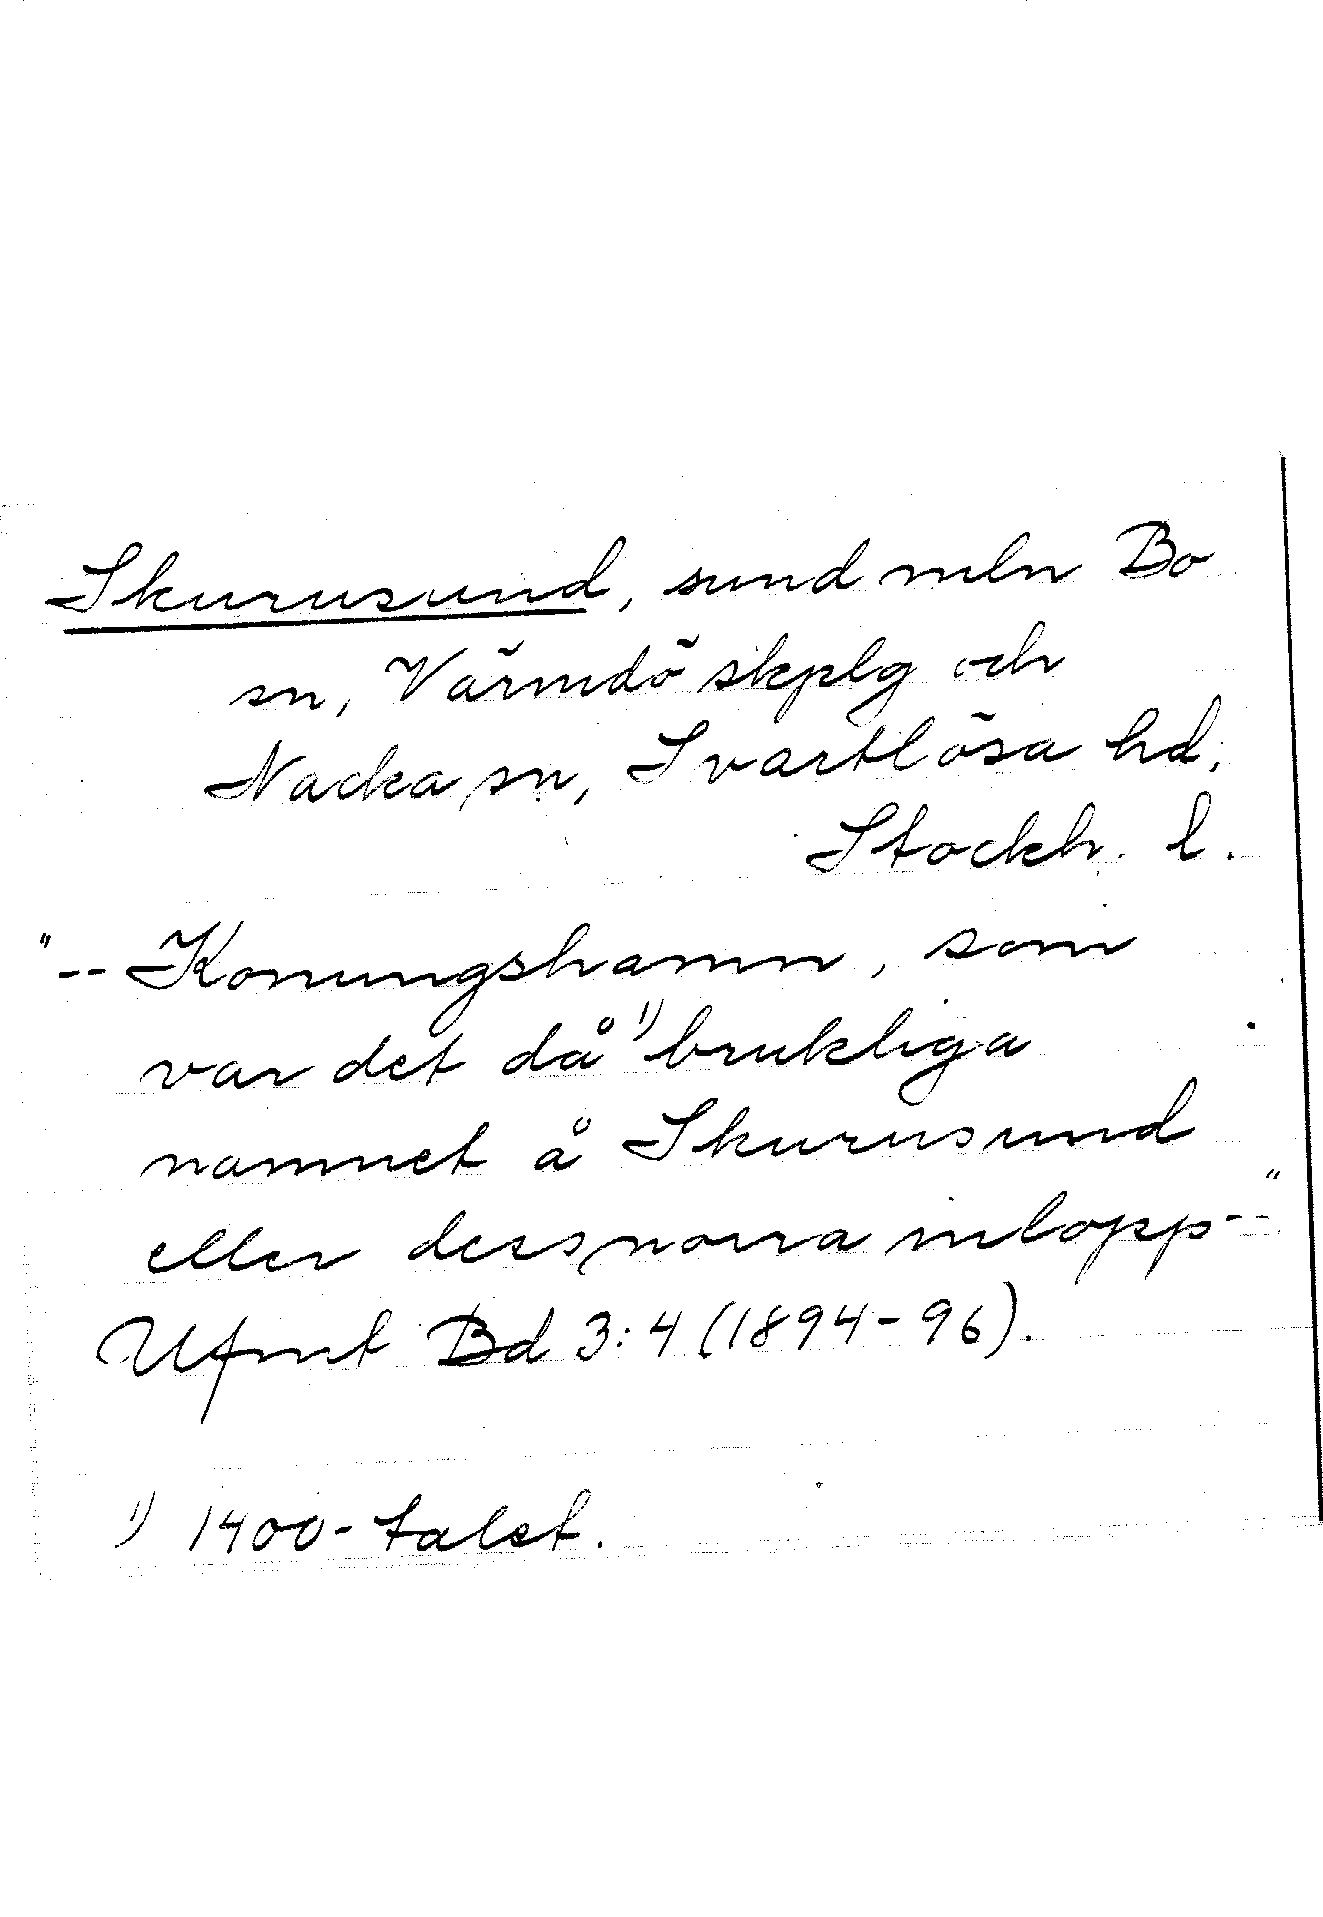 Skurusund, sund mln Bo
sn, Värmdö skplg och
Nacka sn, Svartlösa hd,
Stockh. l.
"-- Konungshamn, som
var det då 1) brukliga
namnet å Skurusund
eller dess norra inlopp--"
Ufmt Bd 3:4 (1894-96).
1) 1400-talet.